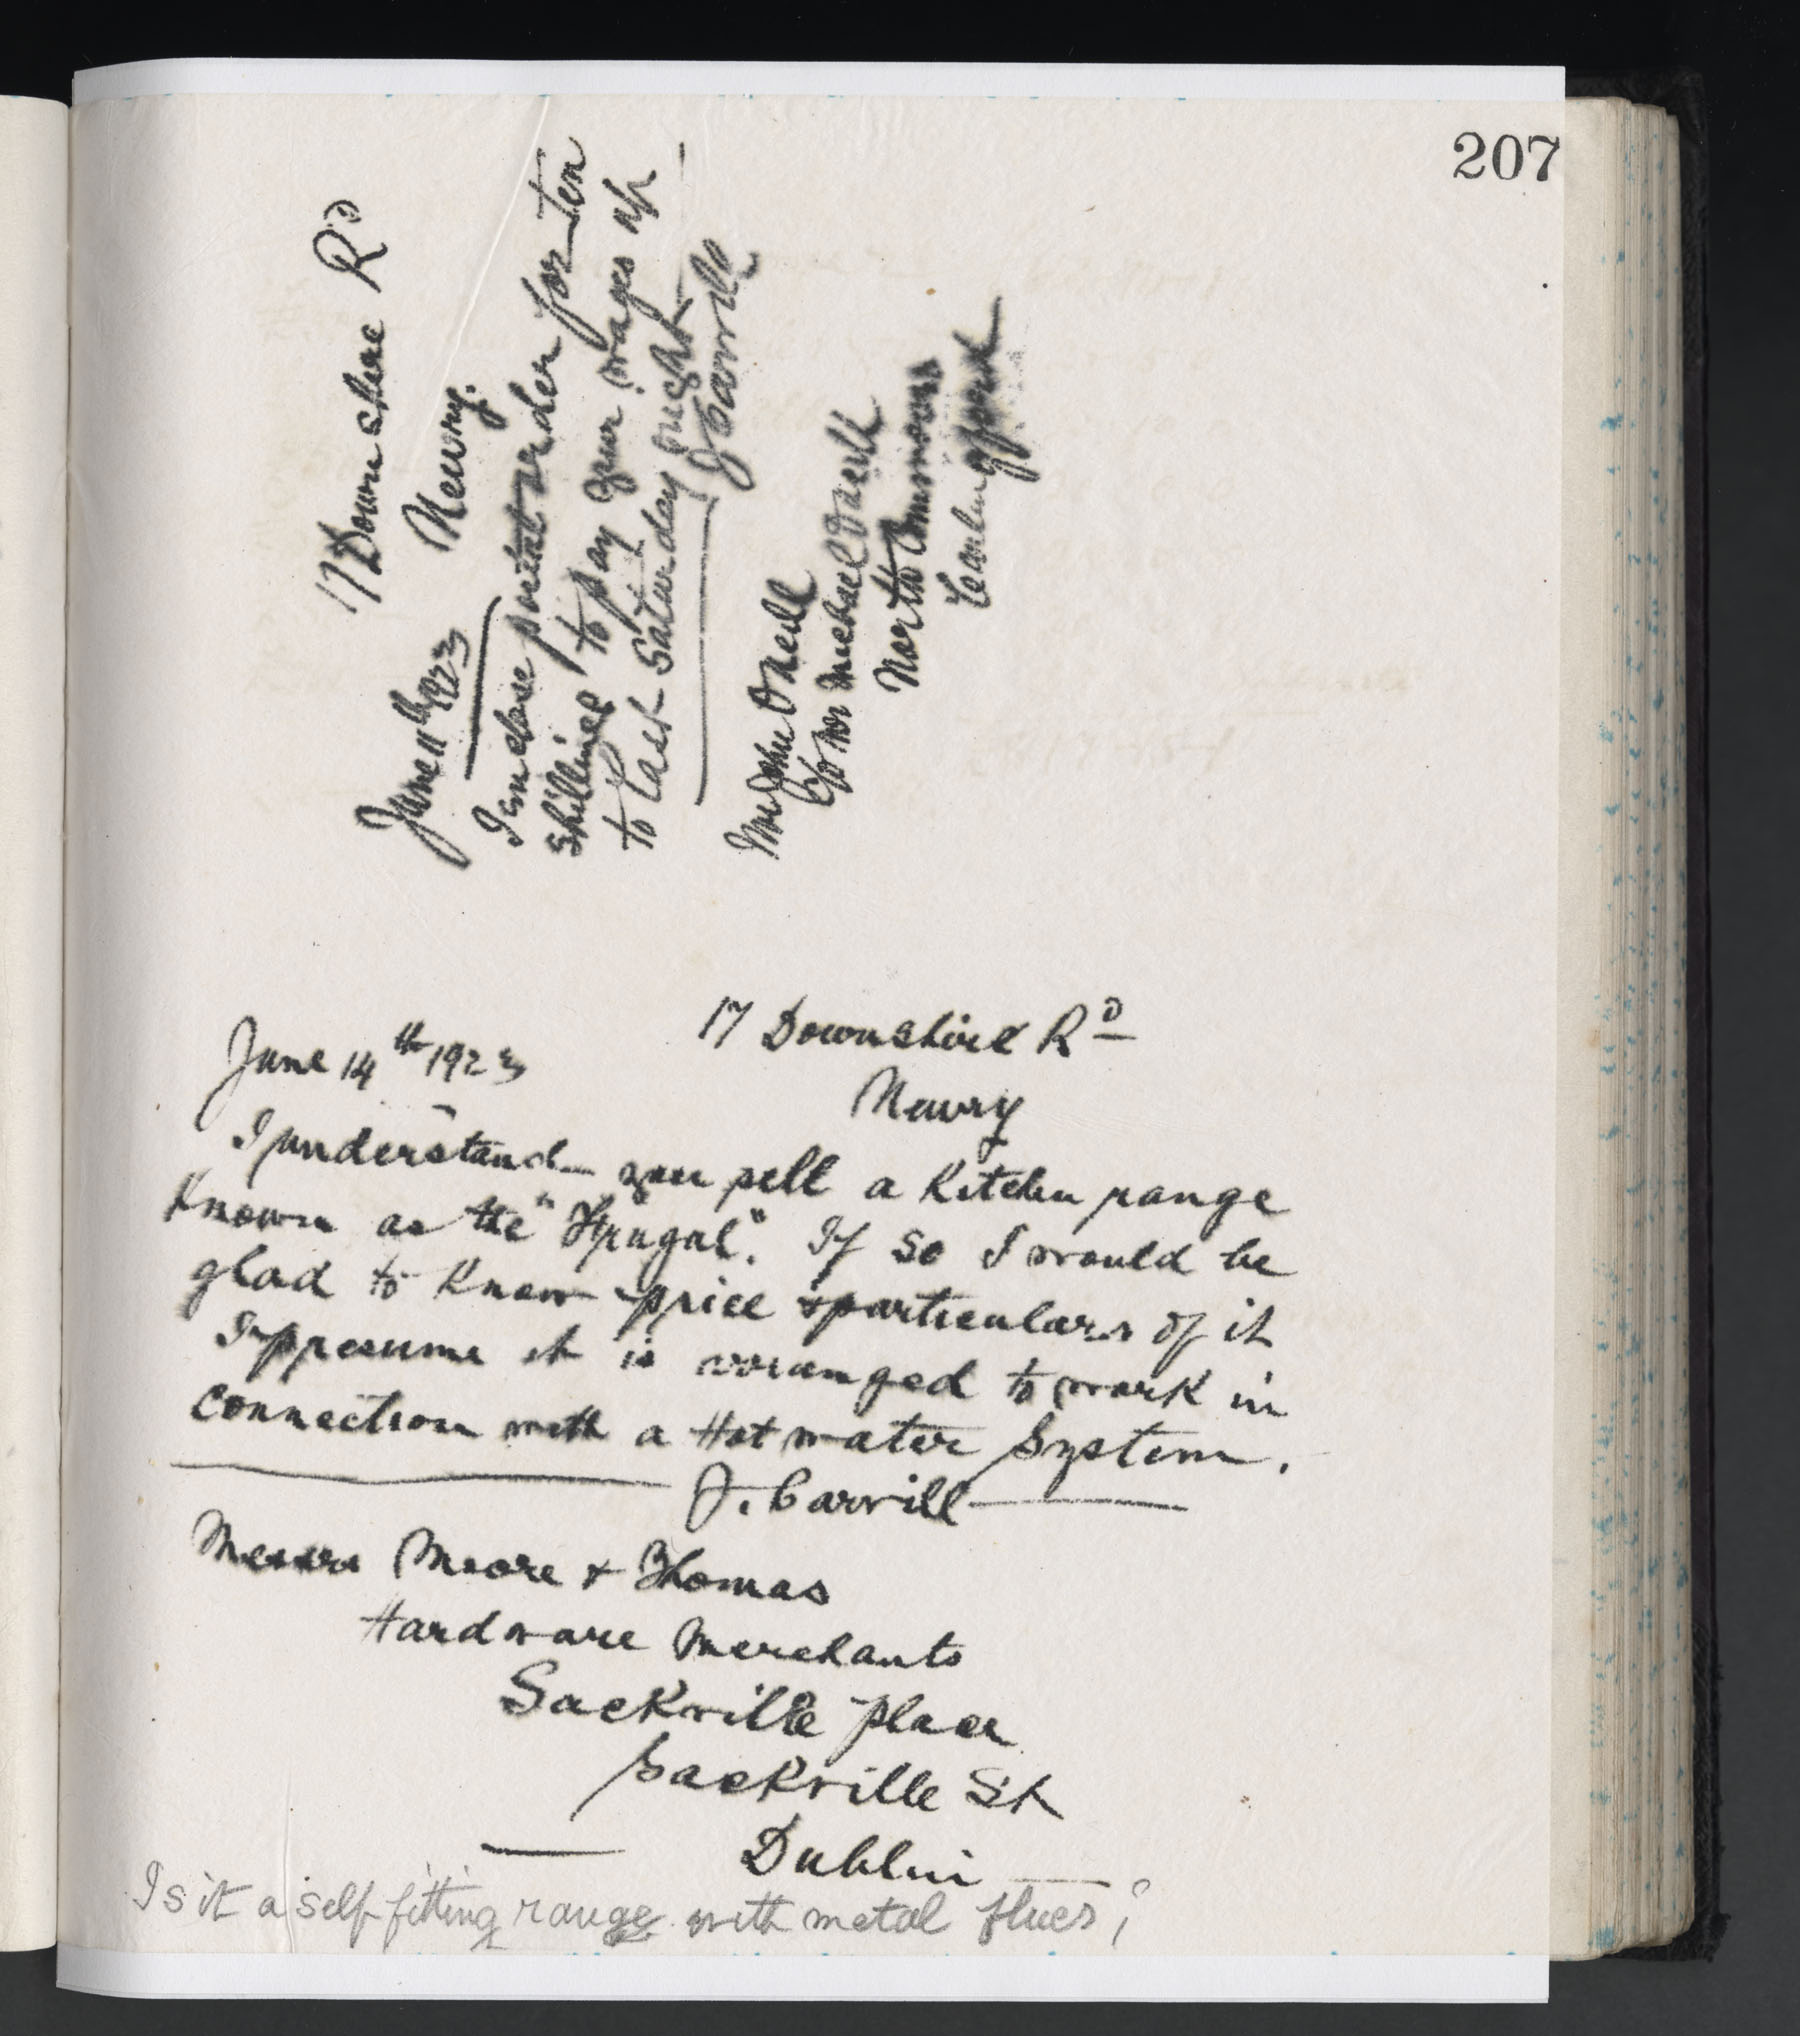 207
17 Downshire Rd
Newry.
June 11th 1923
I enclose postal order for ten
shillings to pay your wages up
to last Saturday night
J Carvill
Mr John O Neill
C/o Mr Michael
North Commons
Carlingford
17 Downshire Rd
June 14th 1923
Newry
I understand you sell a Kitchen range
Known as the "Frugal". If so I would be
glad to know price & particulars of it
I presume it is arranged to work in
connection with a Hot water System.
J. Carvill
Messrs Moore & Thomas
Hardware Merchants
Sackville place
Sackville St
Dublin
Is it a self fitting range with metal flues?